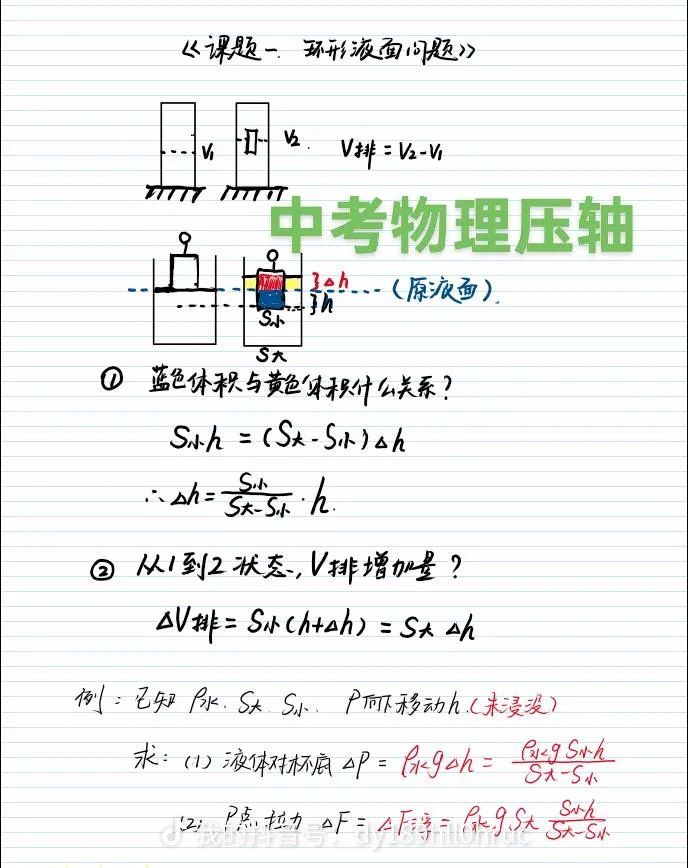 《课题一、环形液面问题》
V₁ V₂ V排 = V₂-V₁
中考物理压轴
}△h
(原液面)
}h
S小
S大
① 蓝色体积与黄色体积什么关系?
S小h = (S大-S小)△h
∴△h = S小/(S大-S小)·h.
② 从1到2状态, V排增加量?
△V排 = S小(h+△h) = S大△h
例: 已知 ρ水、S大、S小、P向下移动h.(未浸没)
求: (1) 液体对杯底△P = ρ水g△h = ρ水gS小h/(S大-S小)
(2) P点拉力△F = △F浮 = ρ水gS大 S小h/(S大-S小)
我的抖音号: